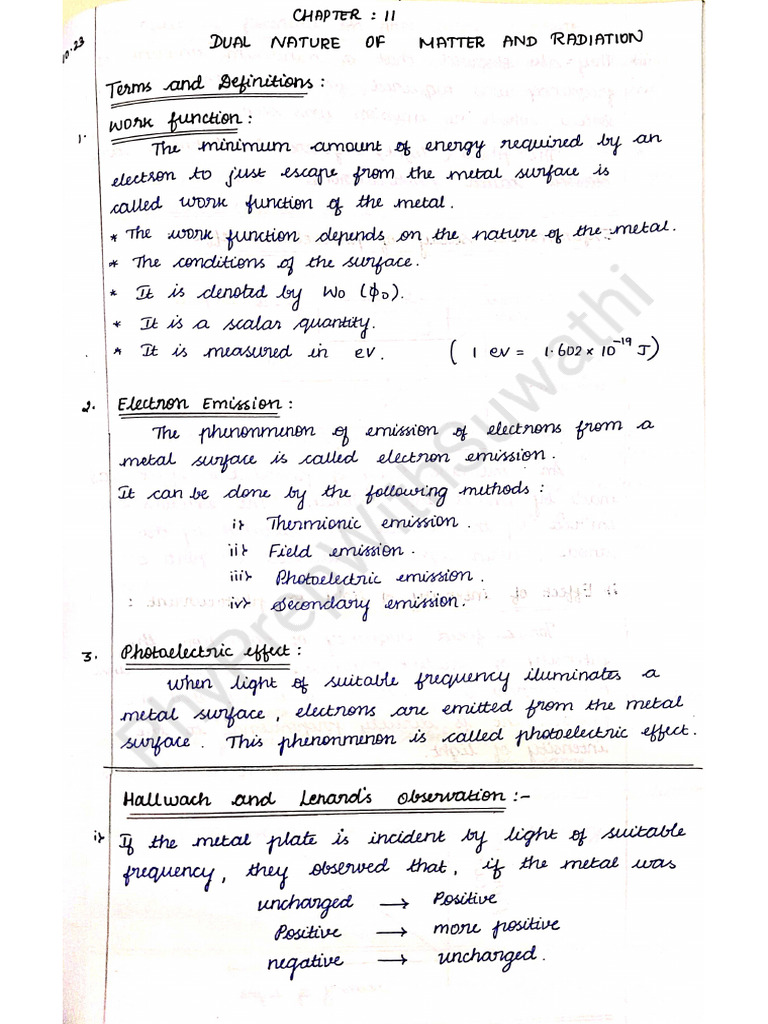 CHAPTER : 11
10.23
DUAL NATURE OF MATTER AND RADIATION
Terms and Definitions :
1. Work function :
The minimum amount of energy required by an
electron to just escape from the metal surface is
called work function of the metal.
* The work function depends on the nature of the metal.
* The conditions of the surface.
* It is denoted by W0 (ϕ0).
* It is a scalar quantity.
* It is measured in eV. ( 1 eV = 1.602 × 10^-19 J)
2. Electron Emission :
The phenonmenon of emission of electrons from a
metal surface is called electron emission.
It can be done by the following methods :
i} Thermionic emission.
ii} Field emission.
iii} Photoelectric emission.
iv} Secondary emission.
3. Photoelectric effect :
When light of suitable frequency iluminates a
metal surface, electrons are emitted from the metal
surface. This phenonmenon is called photoelectric effect.
Hallwach and Lenard's Observation :-
i} If the metal plate is incident by light of suitable
frequency, they observed that, if the metal was
uncharged → Positive
Positive → more positive
negative → uncharged.
PhyPrepWithSuwathi